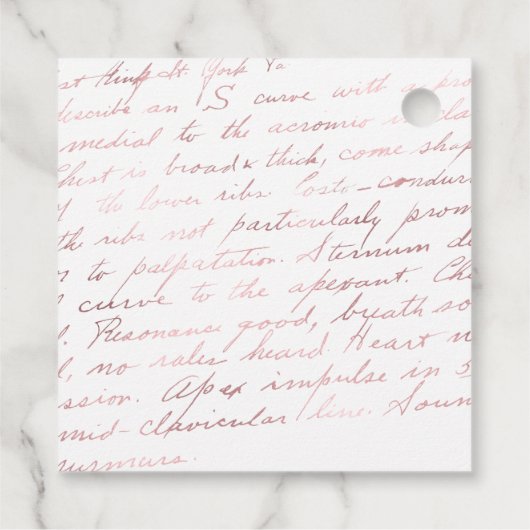 st King St. York Pa
describe an S curve with a pro
medial to the acromio
Chest is broad & thick, come shap
the lower ribs. Costo-condur
the ribs not particularly prom
to palpatation. Sternum de
curve to the apexant. Che
Resonance good, breath so
no rales heard. Heart n
ssion. Apex impulse in 5
mid-clavicular line. Soun
urmurs.